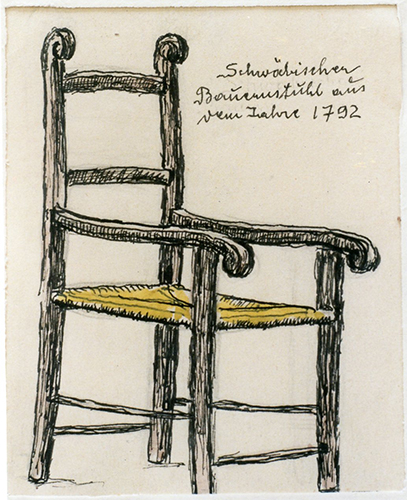 Schwäbischer
Bauernstuhl aus
dem Jahre 1792